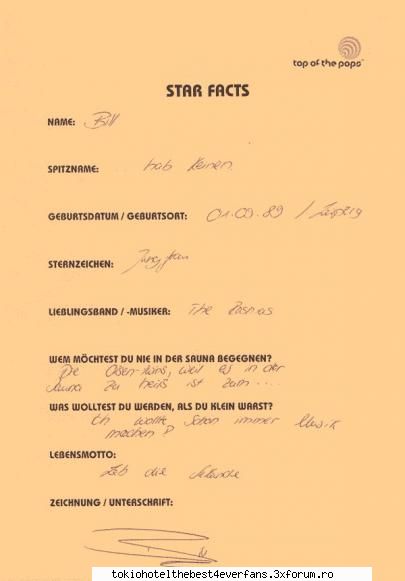 top of the pops
STAR FACTS
NAME: Bill
SPITZNAME: hab keinen
GEBURTSDATUM / GEBURTSORT: 01.09.89 / Leipzig
STERNZEICHEN: Jungfrau
LIEBLINGSBAND / -MUSIKER: The
WEM MÖCHTEST DU NIE IN DER SAUNA BEGEGNEN?
Die Olsen-twins, weil es in der
Sauna zu heiß ist zum ....
WAS WOLLTEST DU WERDEN, ALS DU KLEIN WARST?
Ich wollte schon immer Musik
machen
LEBENSMOTTO:
Leb die Sekunde
ZEICHNUNG / UNTERSCHRIFT:
tokiohotelthebest4everfans.3xforum.ro